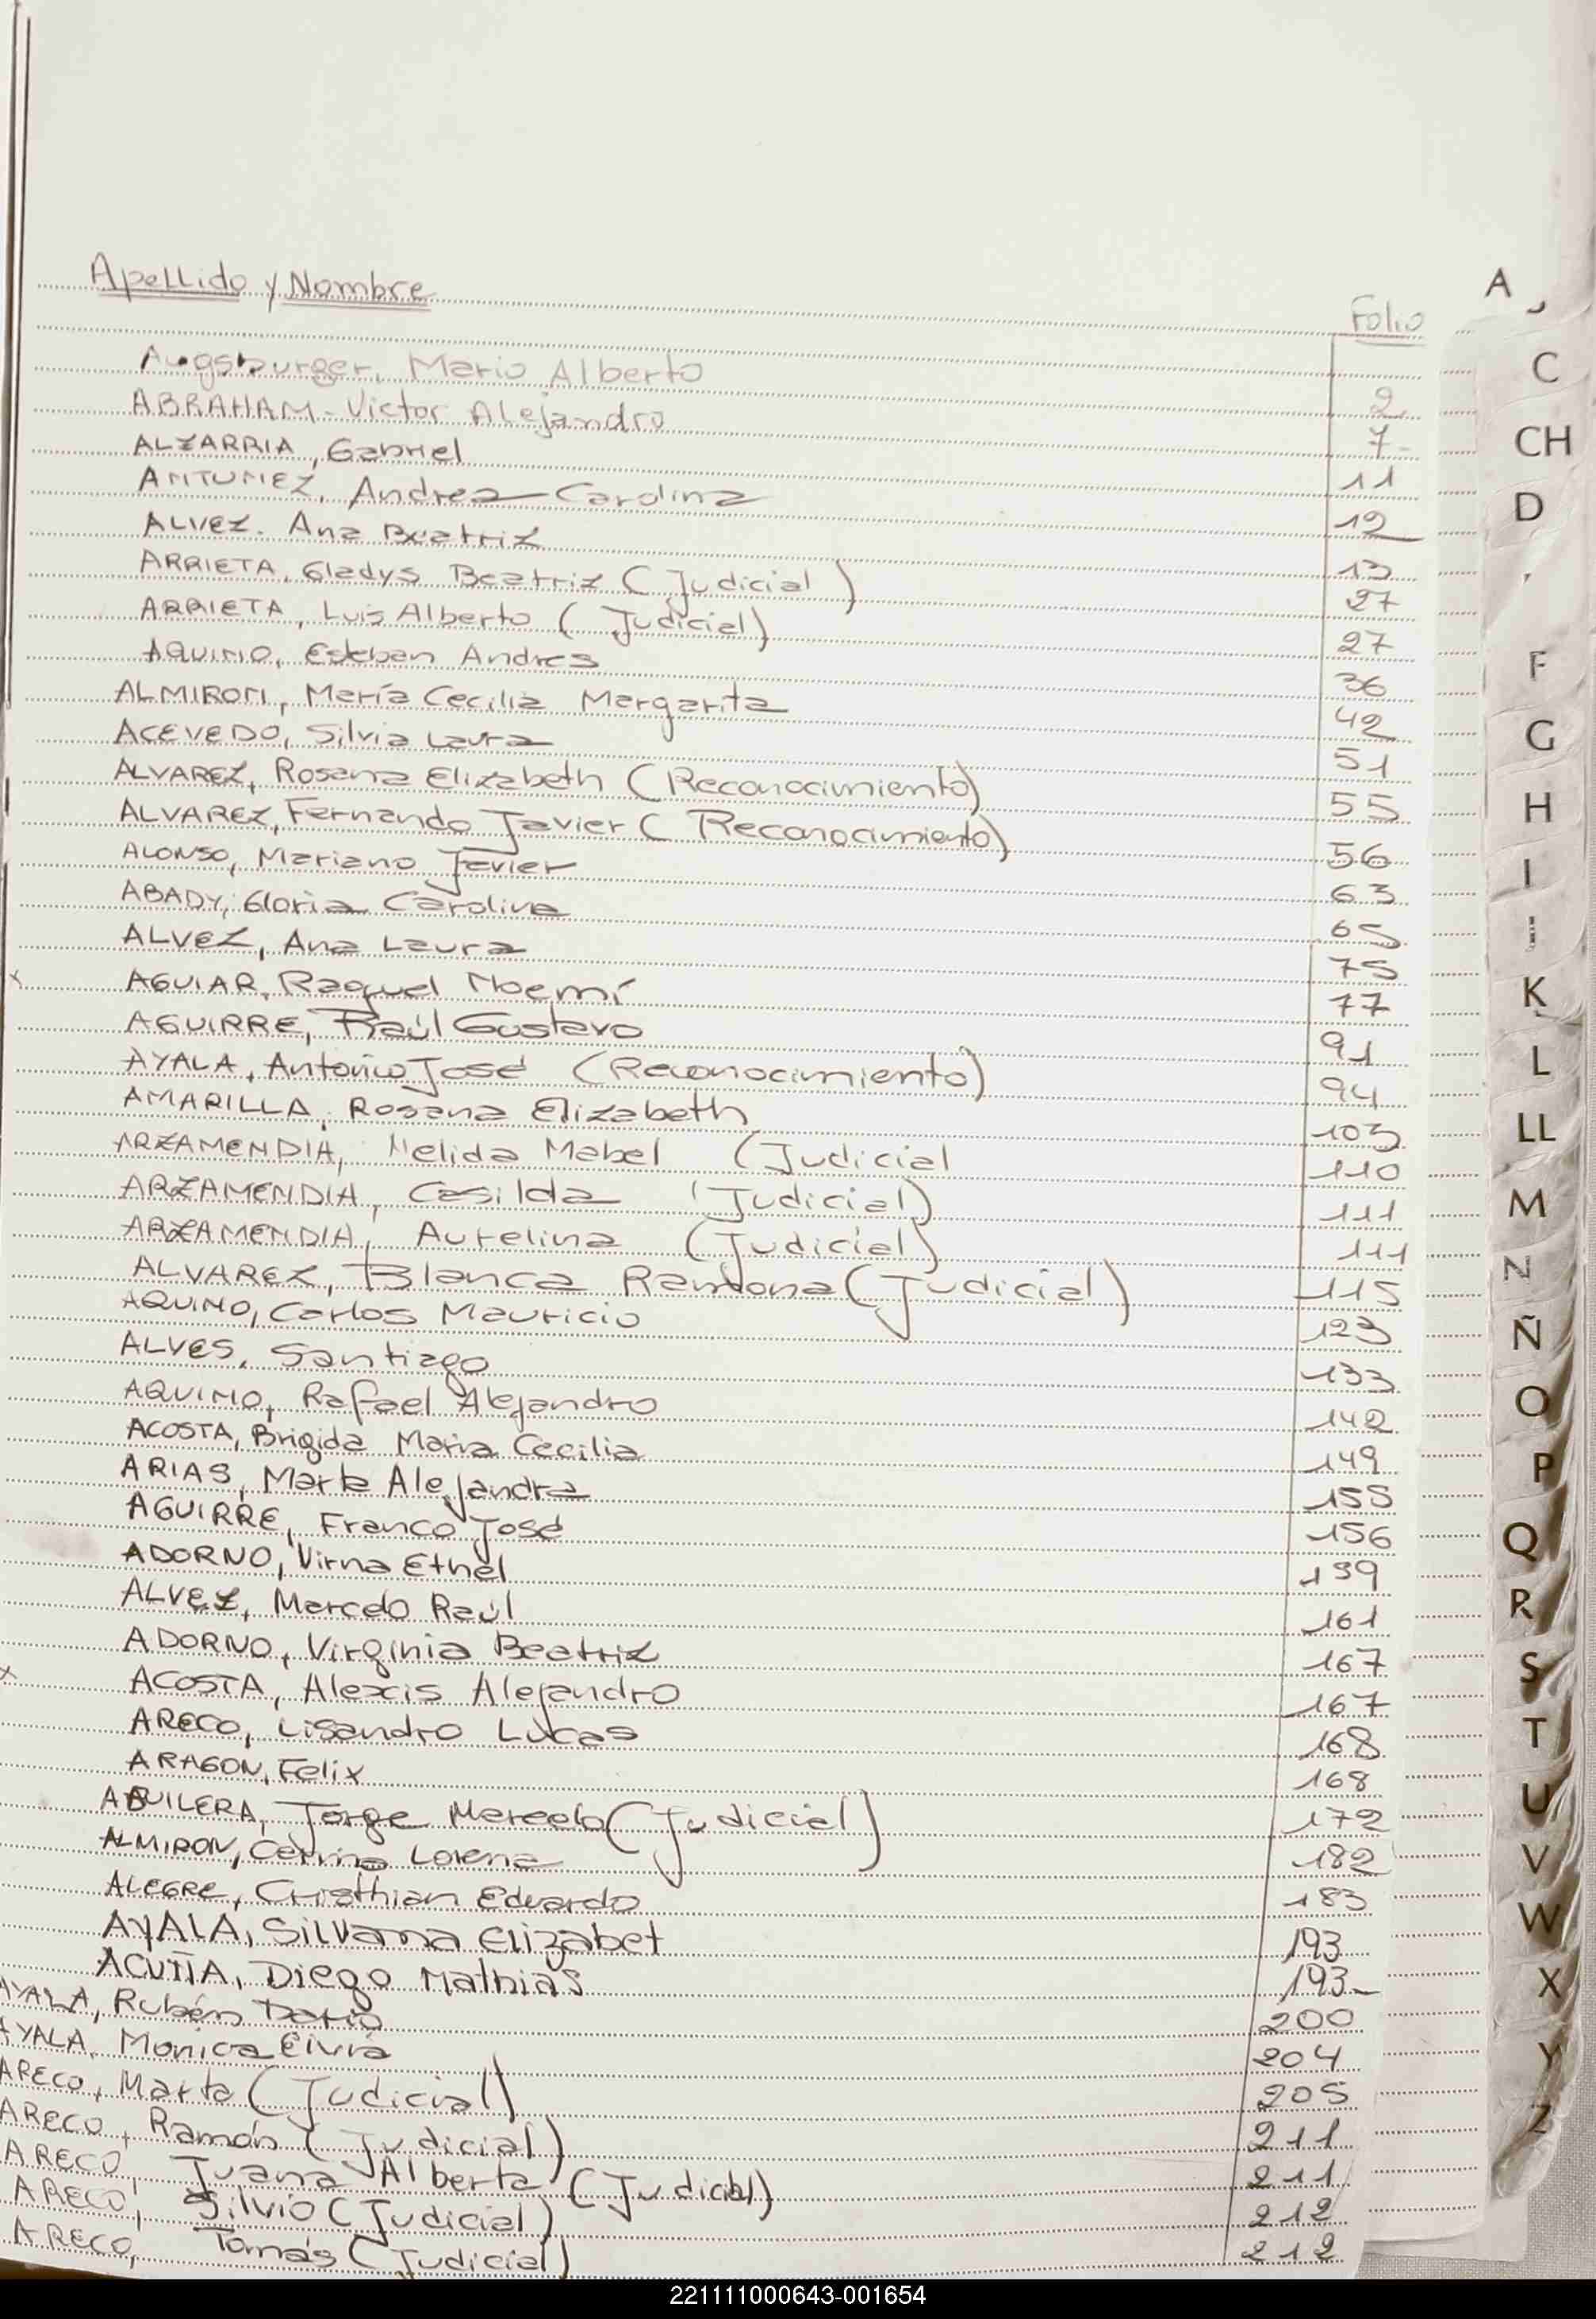 Apellido y Nombre Folio
Augsburger, Mario Alberto 2
ABRAHAM - Victor Alejandro 7-
ALZARRIA, Gabriel 11
ANTUNEZ, Andrea Carolina 12
ALVEZ. Ana Beatriz 13
ARRIETA, Gladys Beatriz (Judicial) 27
ARRIETA, Luis Alberto (Judicial) 27
AQUINO, Esteban Andres 36
ALMIRON, María Cecilia Margarita 42
ACEVEDO, Silvia Laura 51
ALVAREZ, Rosana Elizabeth (Reconocimiento) 55
ALVAREZ, Fernando Javier (Reconocimiento) 56
ALONSO, Mariano Javier 63
ABADY, Gloria Carolina 65
ALVEZ, Ana Laura 75
x AGUIAR, Raquel Noemí 77
AGUIRRE, Raúl Gustavo 91
AYALA, Antonio José (Reconocimiento) 94
AMARILLA, Rosana Elizabeth 103
ARZAMENDIA, Nelida Mabel (Judicial 110
ARZAMENDIA, Casilda (Judicial) 111
ARZAMENDIA, Aurelina (Judicial) 111
ALVAREZ, Blanca Ramona (Judicial) 115
AQUINO, Carlos Mauricio 123
ALVES, Santiago 133
AQUINO, Rafael Alejandro 142
ACOSTA, Brigida Maria Cecilia 149
ARIAS, Marta Alejandra 155
AGUIRRE, Franco José 156
ADORNO, Virna Ethel 159
ALVEZ, Marcelo Raúl 161
ADORNO, Virginia Beatriz 167
x ACOSTA, Alexis Alejandro 167
ARECO, Lisandro Lucas 168
ARAGON, Felix 168
AGUILERA, Jorge Marcelo (Judicial) 172
ALMIRON, Lorena 182
ALEGRE, Cristhian Eduardo 183
AYALA, Silvana Elizabet 193
ACUÑA, Diego Mathias 193-
AYALA, Rubén Darío 200
AYALA, Monica Elvia 204
ARECO, Marta (Judicial) 205
ARECO, Ramón (Judicial) 211
ARECO, Juana Alberta (Judicial) 211
ARECO, Silvio (Judicial) 212
ARECO, Tomás (Judicial) 212
A
C
CH
D
F
G
H
I
K
L
LL
M
N
Ñ
O
P
Q
R
S
T
U
V
W
X
Y
Z
221111000643-001654